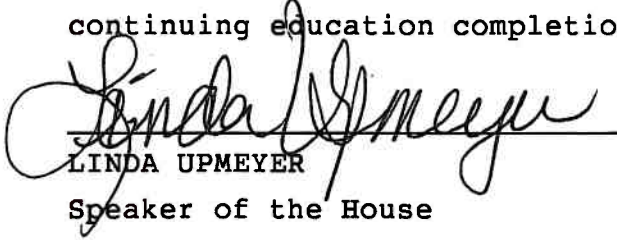 continuing education completio
Linda Upmeyer
LINDA UPMEYER
Speaker of the House